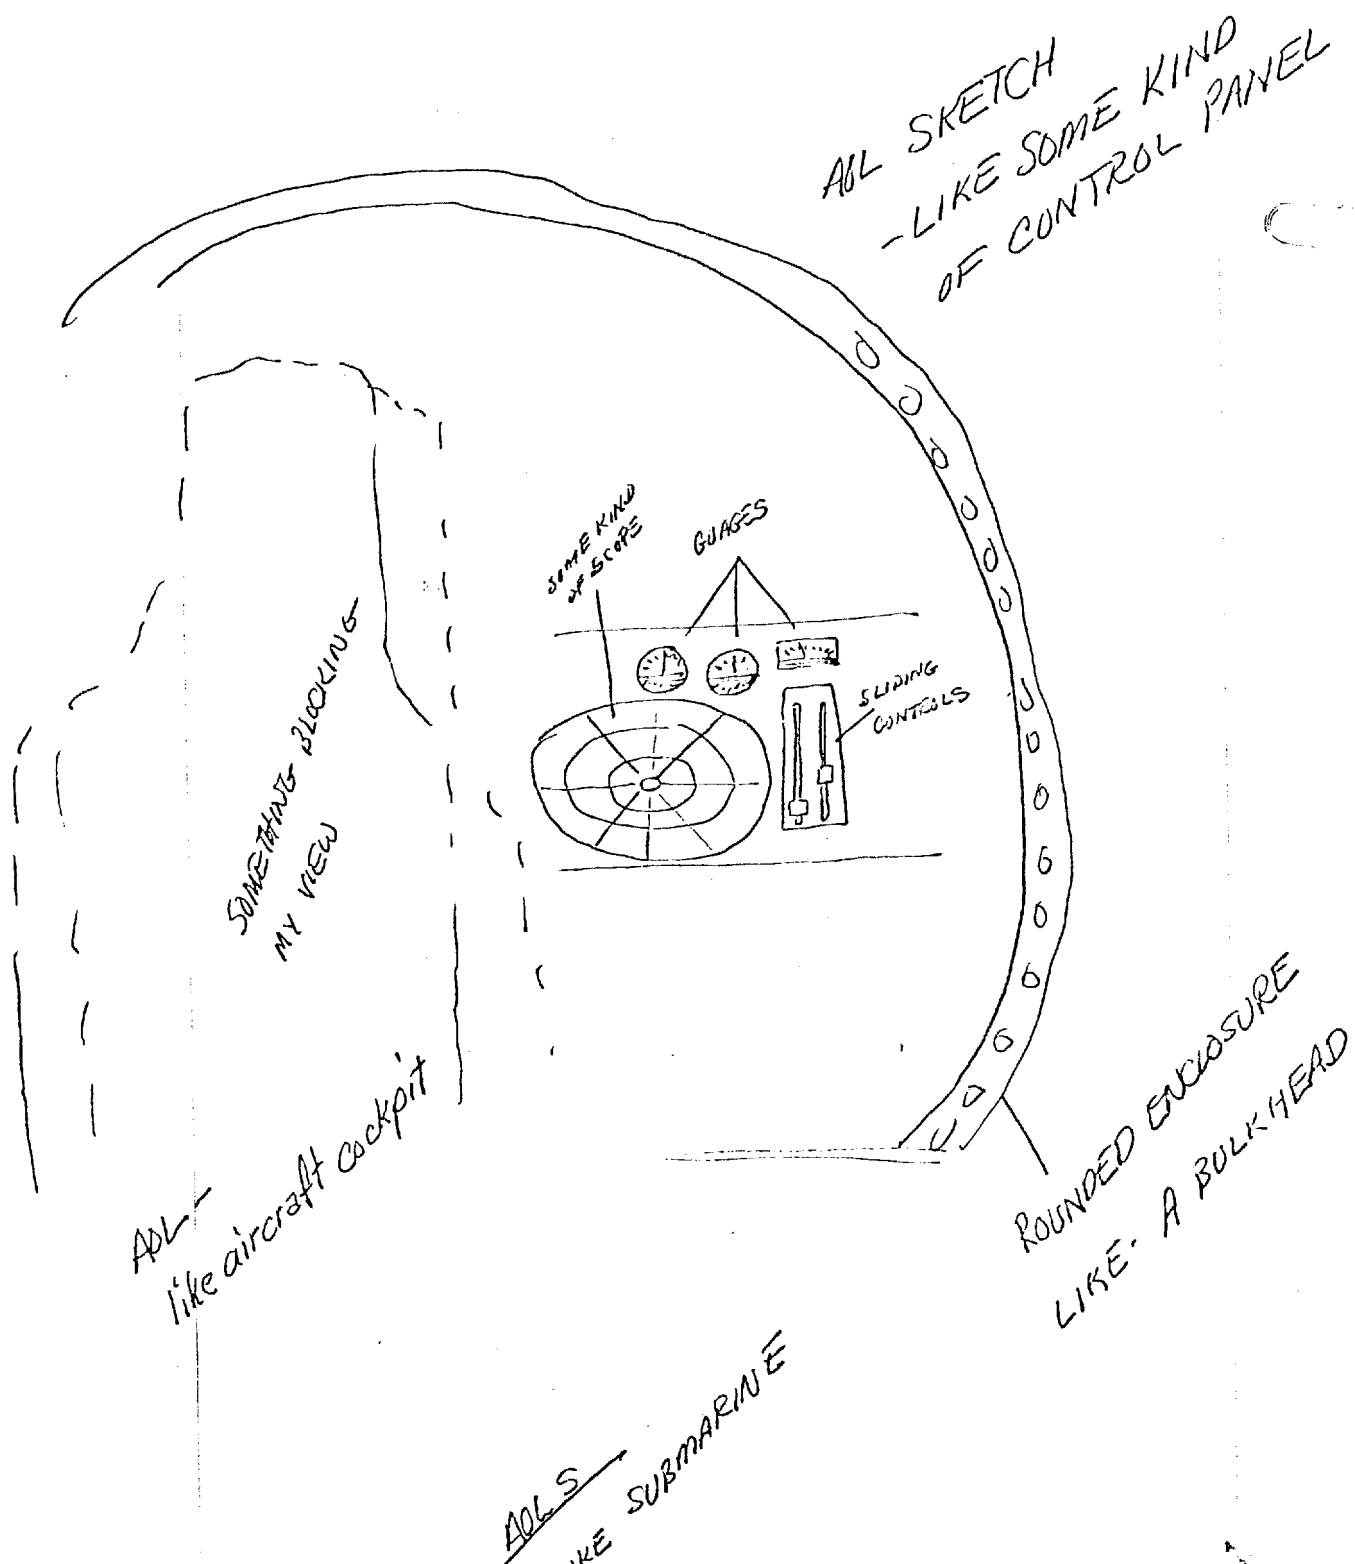 AOL SKETCH
-LIKE SOME KIND
OF CONTROL PANEL
SOME KIND
OF SCOPE
GUAGES
SLIDING
CONTROLS
SOMETHING BLOCKING
MY VIEW
AOL-
like aircraft cockpit
ROUNDED ENCLOSURE
LIKE. A BULKHEAD
AOLS
SUBMARINE